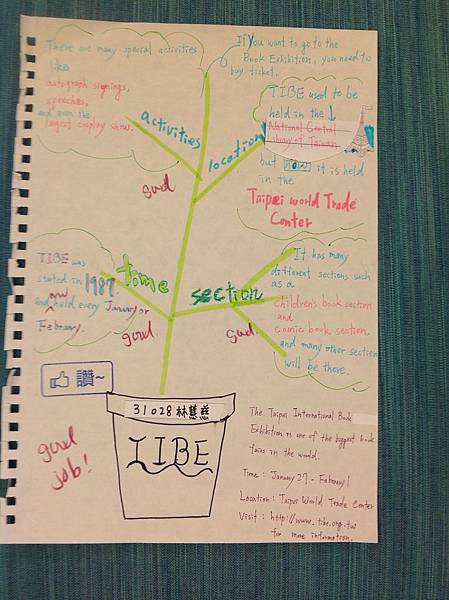 There are many special activities
like
autograph signings,
speeches,
and even the
largest cosplay show.
If you want to go to the
Book Exhibition, you need to
buy ticket.
activities
location
good
TIBE used to be
held in the ↓
National Central
Library of Taiwan
but now it is held
in the
Taipei world Trade
Center
TIBE was
started in 1987.
and now held every January or
February.
time
good.
section
good.
It has many
different sections such
as a
children's book section
and
comic book section
and many other section
will be there.
讚~
good
job!
31028 林慧
TIBE
The Taipei International Book
Exhibition is one of the biggest book
fairs in the world.
Time : January 27 - February 1
Location : Taipei World Trade Center
Visit : http://www.tibe.org.tw
for more information.